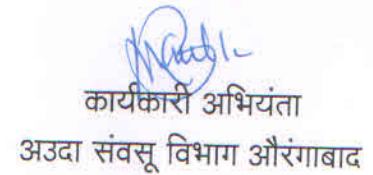 कार्यकारी अभियंता
अउदा संवसू विभाग औरंगाबाद